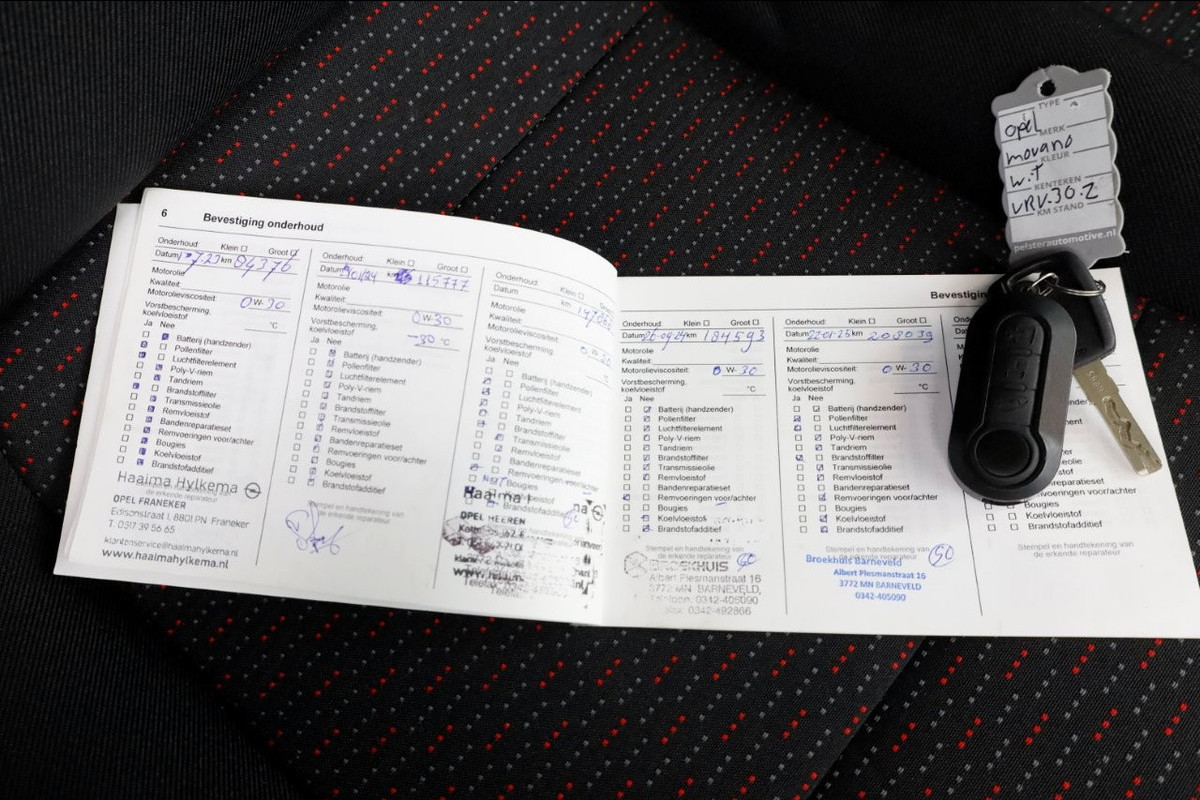 6 Bevestiging onderhoud
Onderhoud: Klein Groot
Datum km 84376
Motorolie
Kwaliteit:
Motorolieviscositeit: 0 W- 30
Vorstbescherming,
koelvloeistof °C
Ja Nee
Batterij (handzender)
Pollenfilter
Luchtfilterelement
Poly-V-riem
Tandriem
Brandstoffilter
Transmissieolie
Remvloeistof
Bandenreparatieset
Remvoeringen voor/achter
Bougies
Koelvloeistof
Brandstofadditief
Haaima Hylkema
de erkende reparateur
OPEL FRANEKER
Edisonstraat 1, 8801 PN Franeker
T. 0517 39 56 65
klantenservice@haaimahylkema.nl
www.haaimahylkema.nl
Onderhoud: Klein Groot
Datum km 115777
Motorolie
Kwaliteit:
Motorolieviscositeit: 0 W- 30
Vorstbescherming,
koelvloeistof -30 °C
Ja Nee
Batterij (handzender)
Pollenfilter
Luchtfilterelement
Poly-V-riem
Tandriem
Brandstoffilter
Transmissieolie
Remvloeistof
Bandenreparatieset
Remvoeringen voor/achter
Bougies
Koelvloeistof
Brandstofadditief
Stempel en handtekening van
de erkende reparateur
Onderhoud: Klein
Datum km
Motorolie
Kwaliteit:
Motorolieviscositeit:
Vorstbescherming,
koelvloeistof
Ja Nee
Batterij (handzender)
Pollenfilter
Luchtfilterelement
Poly-V-riem
Tandriem
Brandstoffilter
Transmissieolie
Remvloeistof
Bandenreparatieset
Remvoeringen voor/achter
Bougies
Koelvloeistof
Brandstofadditief
Haaima
OPEL HEEREN
Bevestigin
Onderhoud: Klein Groot
Datum 26-09-24 km 184593
Motorolie
Kwaliteit:
Motorolieviscositeit: 0 W- 30
Vorstbescherming,
koelvloeistof °C
Ja Nee
Batterij (handzender)
Pollenfilter
Luchtfilterelement
Poly-V-riem
Tandriem
Brandstoffilter
Transmissieolie
Remvloeistof
Bandenreparatieset
Remvoeringen voor/achter
Bougies
Koelvloeistof
Brandstofadditief
Stempel en handtekening van
de erkende reparateur
BROEKHUIS
Albert Plesmanstraat 16
3772 MN BARNEVELD,
Telefoon: 0342-405090
Fax: 0342-492866
Onderhoud: Klein Groot
Datum 22-01-25 km 208039
Motorolie
Kwaliteit:
Motorolieviscositeit: 0 W- 30
Vorstbescherming,
koelvloeistof °C
Ja Nee
Batterij (handzender)
Pollenfilter
Luchtfilterelement
Poly-V-riem
Tandriem
Brandstoffilter
Transmissieolie
Remvloeistof
Bandenreparatieset
Remvoeringen voor/achter
Bougies
Koelvloeistof
Brandstofadditief
Stempel en handtekening van
de erkende reparateur
Broekhuis Barneveld
Albert Plesmanstraat 16
3772 MN BARNEVELD
0342-405090
Bougies
Koelvloeistof
Brandstofadditief
Stempel en handtekening van
de erkende reparateur
TYPE
Opel
MERK
movano
KLEUR
W.T
KENTEKEN
VRV.30.Z
KM STAND
pelsterautomotive.nl